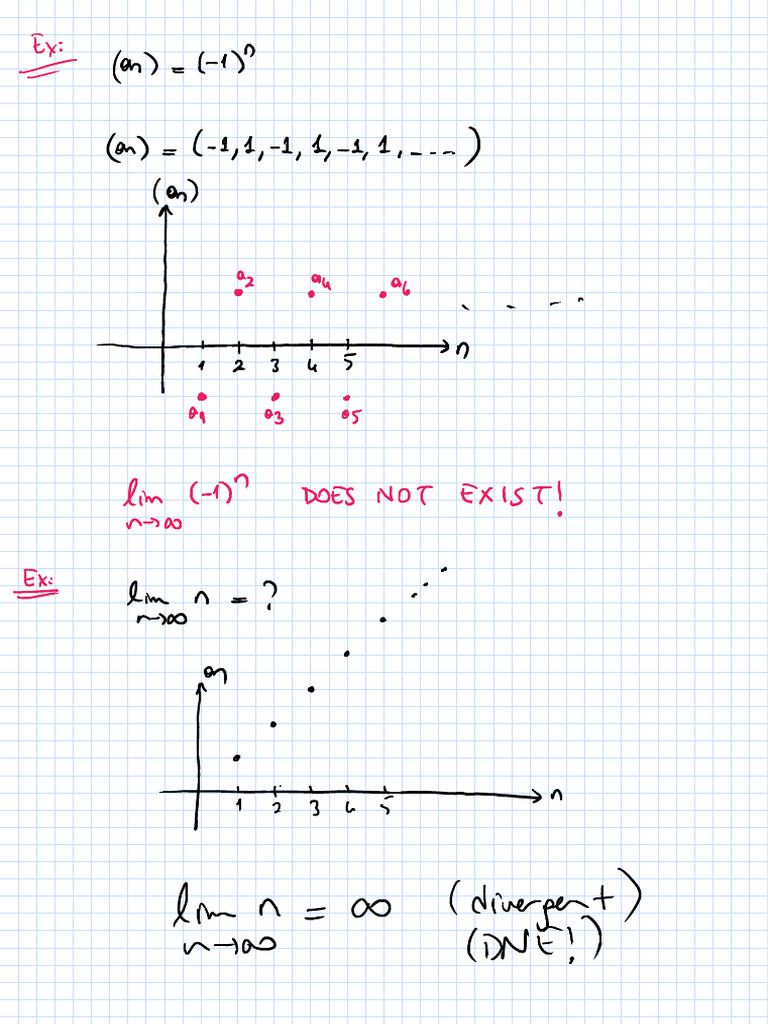 Ex: (an) = (-1)^n
(an) = (-1, 1, -1, 1, -1, 1, ....)
(an)
a2 a4 a6
. . . .
n
1 2 3 4 5
a1 a3 a5
lim (-1)^n DOES NOT EXIST!
n→∞
Ex: lim n = ?
n→∞
an
n
1 2 3 4 5
lim n = ∞ (divergent)
n→∞ (DNE!)